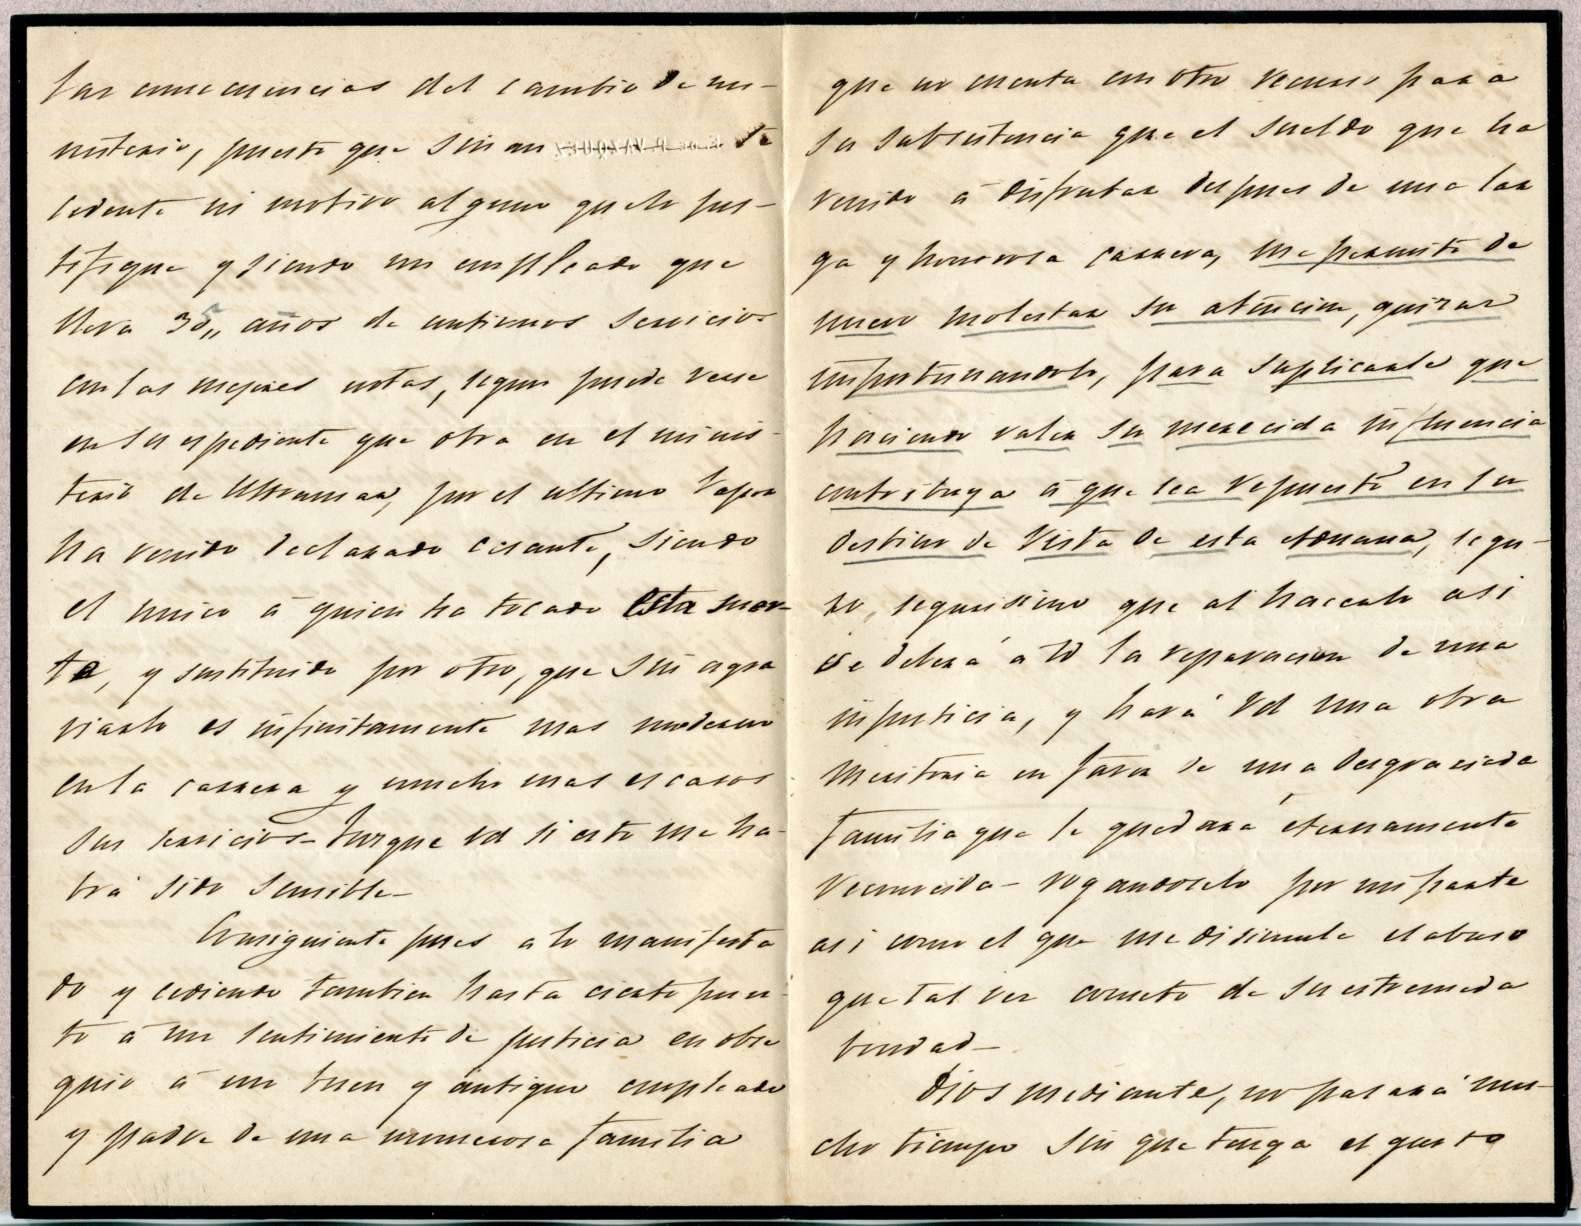 las consecuencias del cambio de mi-
nisterio, puesto que sin an te
cedente ni motivo alguno que lo jus-
tifique y siendo un empleado que
lleva 35,, años de continuos servicios
con las mejores notas, segun puede verse
en su espediente que obra en el minis-
terio de Ultramar, por el ultimo vapor
ha venido declarado cesante, siendo
el unico á quien ha tocado esta suer-
te, y sustituido por otro, que sin agra
viarlo es infinitamente mas moderno
en la carrera y mucho mas escasos
sus servicios – Juzgue Vd si esto me ha-
brá sido sensible –
Consiguiente pues a lo manifesta
do y cediendo tambien hasta cierto pun-
to á un sentimiento de justicia en obse
quio á un buen y antiguo empleado
y padre de una numerosa familia
que no cuenta con otro recurso para
su subsistencia que el sueldo que ha
venido á disfrutar despues de una lar
ga y honrosa carrera, me permito de
nuevo molestar su atencion, quizas
importunandolo, para suplicarle que
haciendo valer su merecida influencia
contribuya á que sea repuesto en su
destino de Vista de esta Aduana, segu-
ro, segurisimo que al hacerlo asi
se deberá a Vd la reparacion de una
injusticia, y hará Vd una obra
meritoria en favor de una desgraciada
familia que le quedará eternamente
reconocida – rogandoselo por mi parte
asi como el que me disimule el abuso
que tal vez cometo de su estremada
bondad –
Dios mediante, no pasará mu-
cho tiempo sin que tenga el gusto